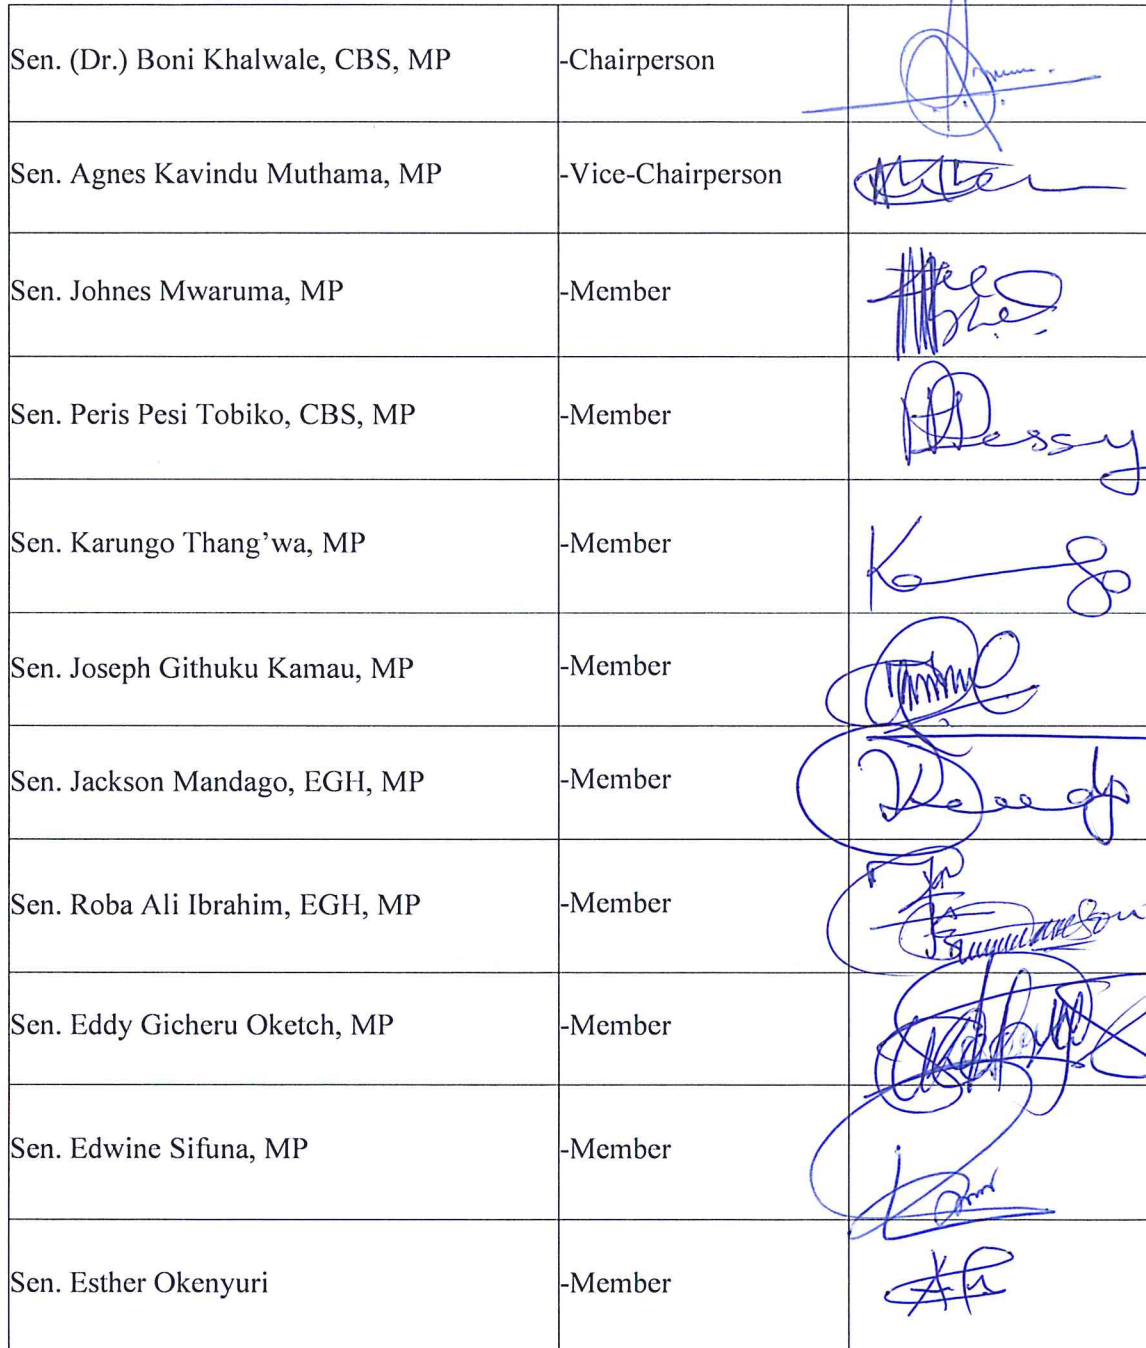 Sen. (Dr.) Boni Khalwale, CBS, MP -Chairperson
Sen. Agnes Kavindu Muthama, MP -Vice-Chairperson
Sen. Johnes Mwaruma, MP -Member
Sen. Peris Pesi Tobiko, CBS, MP -Member
Sen. Karungo Thang’wa, MP -Member
Sen. Joseph Githuku Kamau, MP -Member
Sen. Jackson Mandago, EGH, MP -Member
Sen. Roba Ali Ibrahim, EGH, MP -Member
Sen. Eddy Gicheru Oketch, MP -Member
Sen. Edwine Sifuna, MP -Member
Sen. Esther Okenyuri -Member